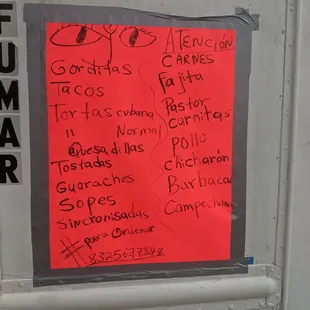 FUMAR
ATENCIÓN
Gorditas
Tacos
Tortas cubana
" Normal
Quesadillas
Tostadas
Guarachos
Sopes
Sincronisadas
# para Ordenar
CARNES
Fajita
Pastor
Carnitas
Pollo
Chicharón
Barbacoa